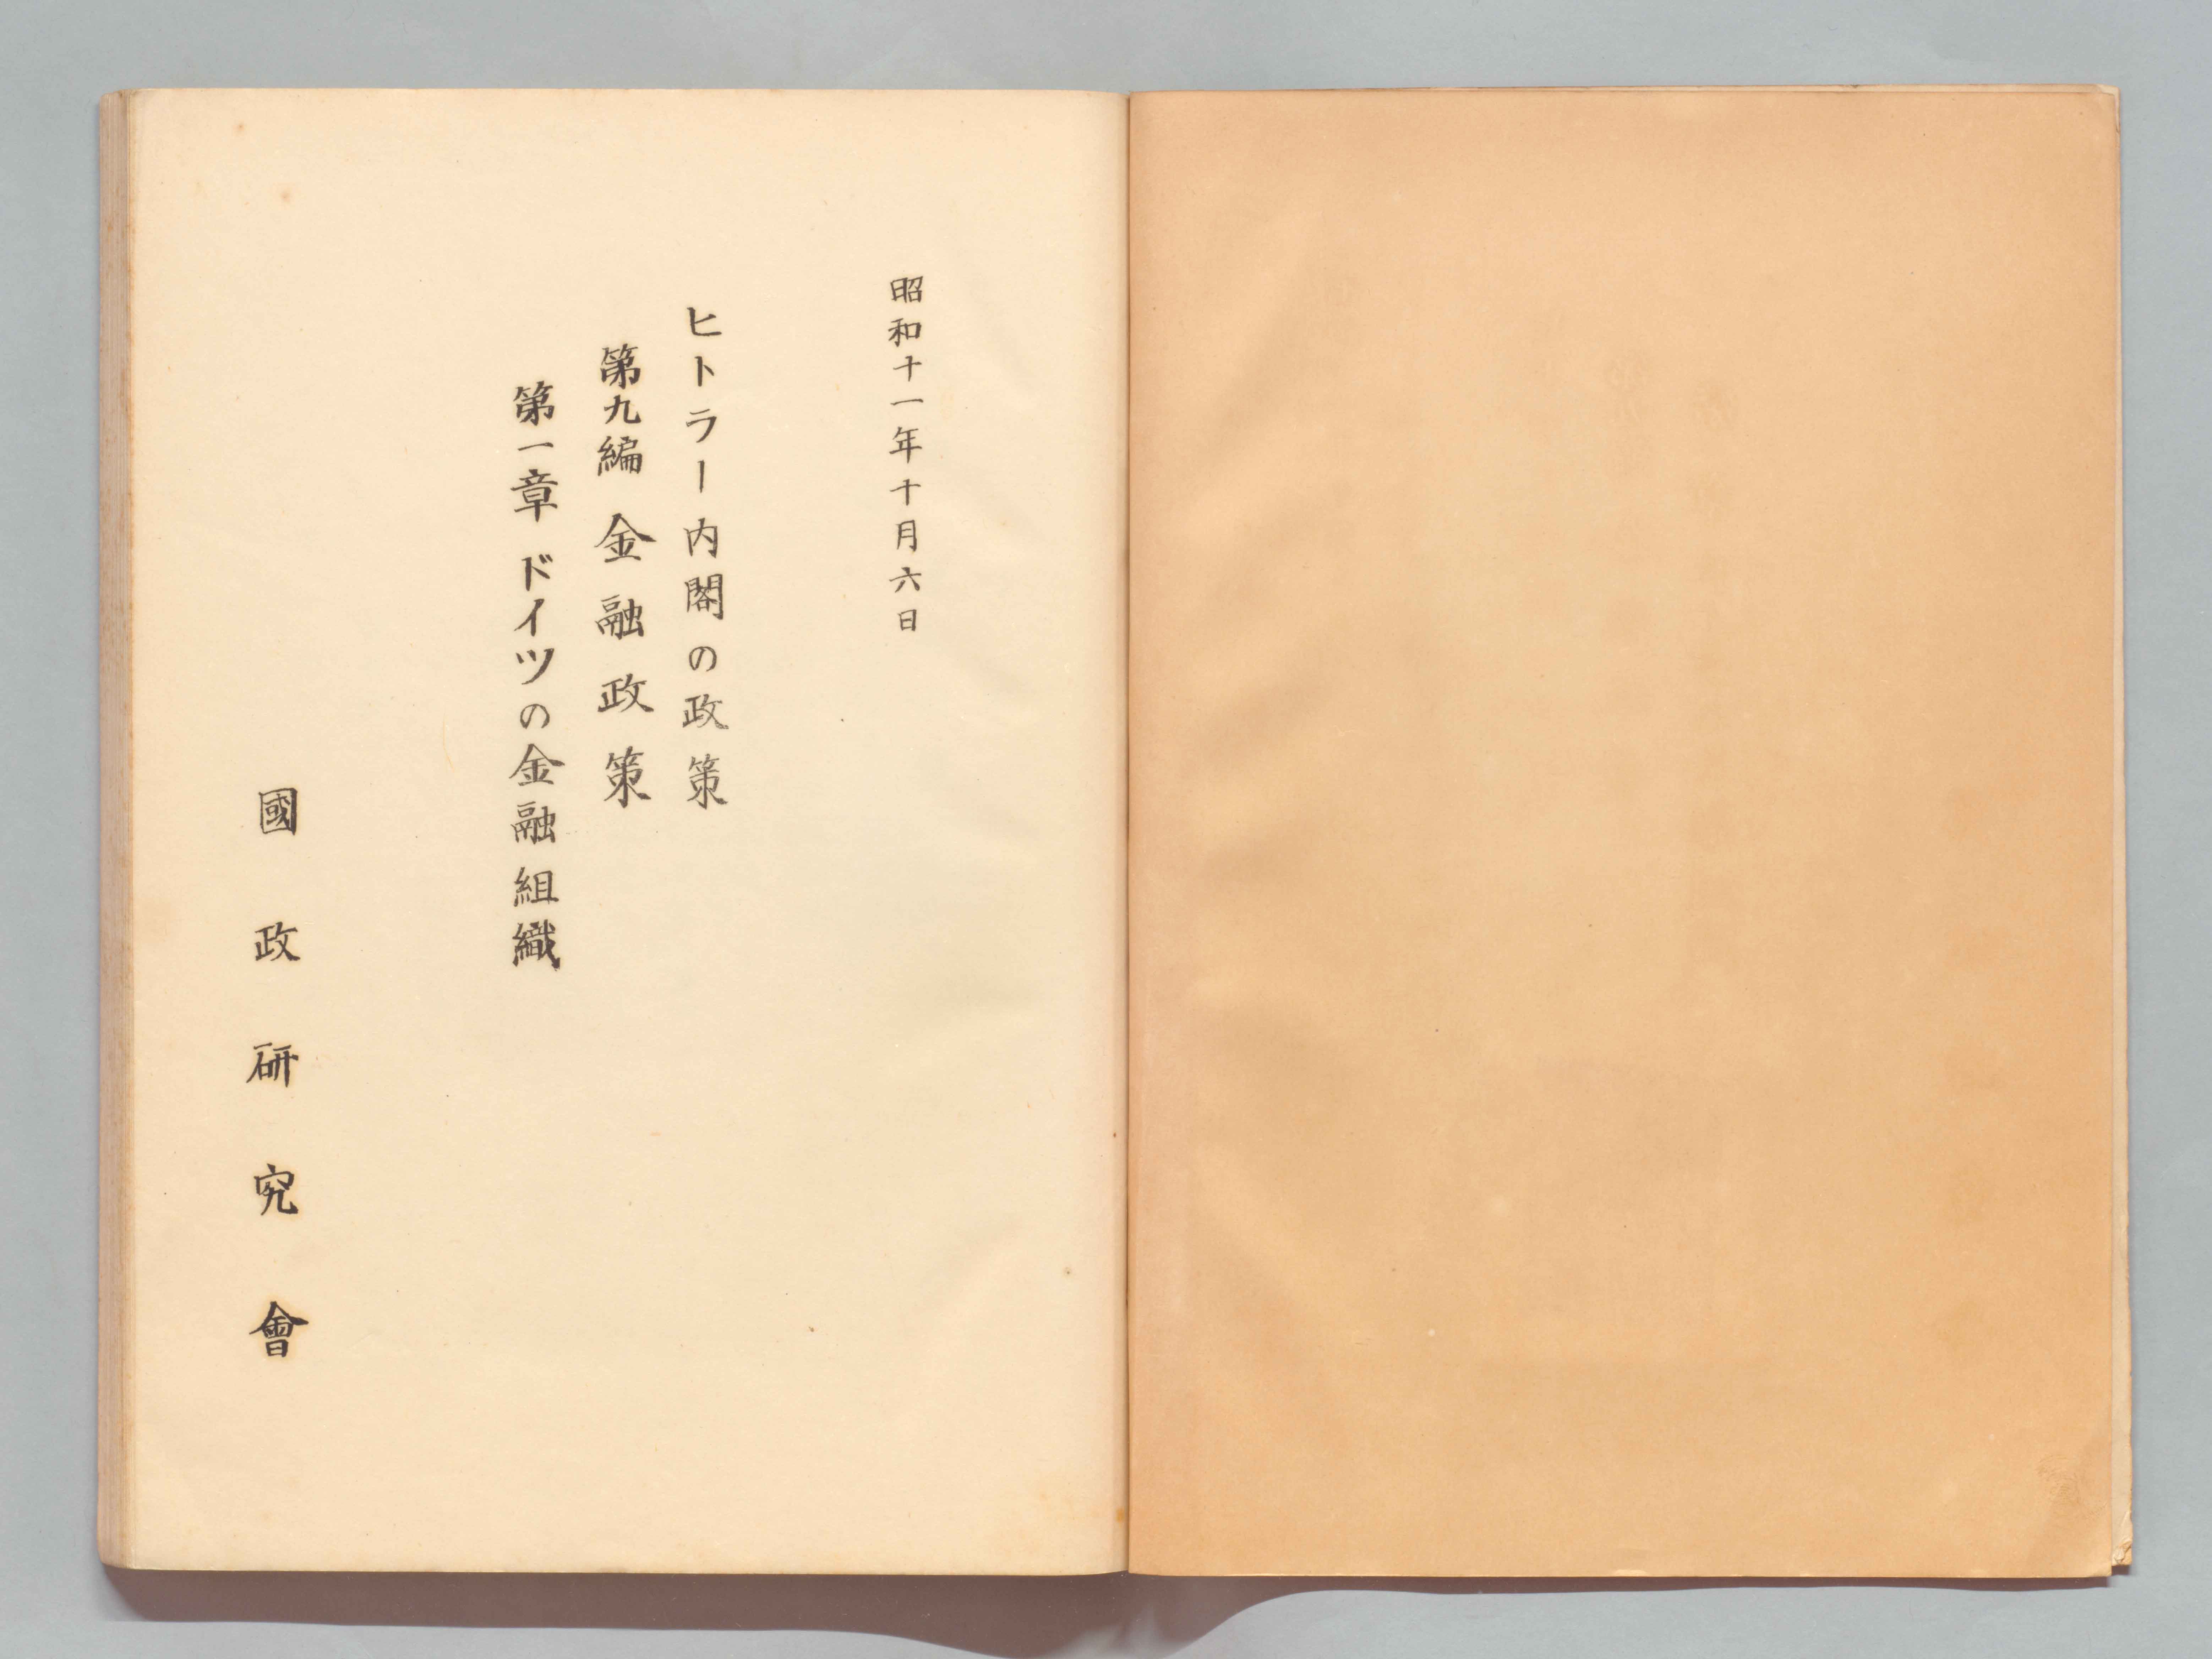 昭和十一年十月六日
ヒトラー内閣の政策
第九編 金融政策
第一章 ドイツの金融組織
國政研究會